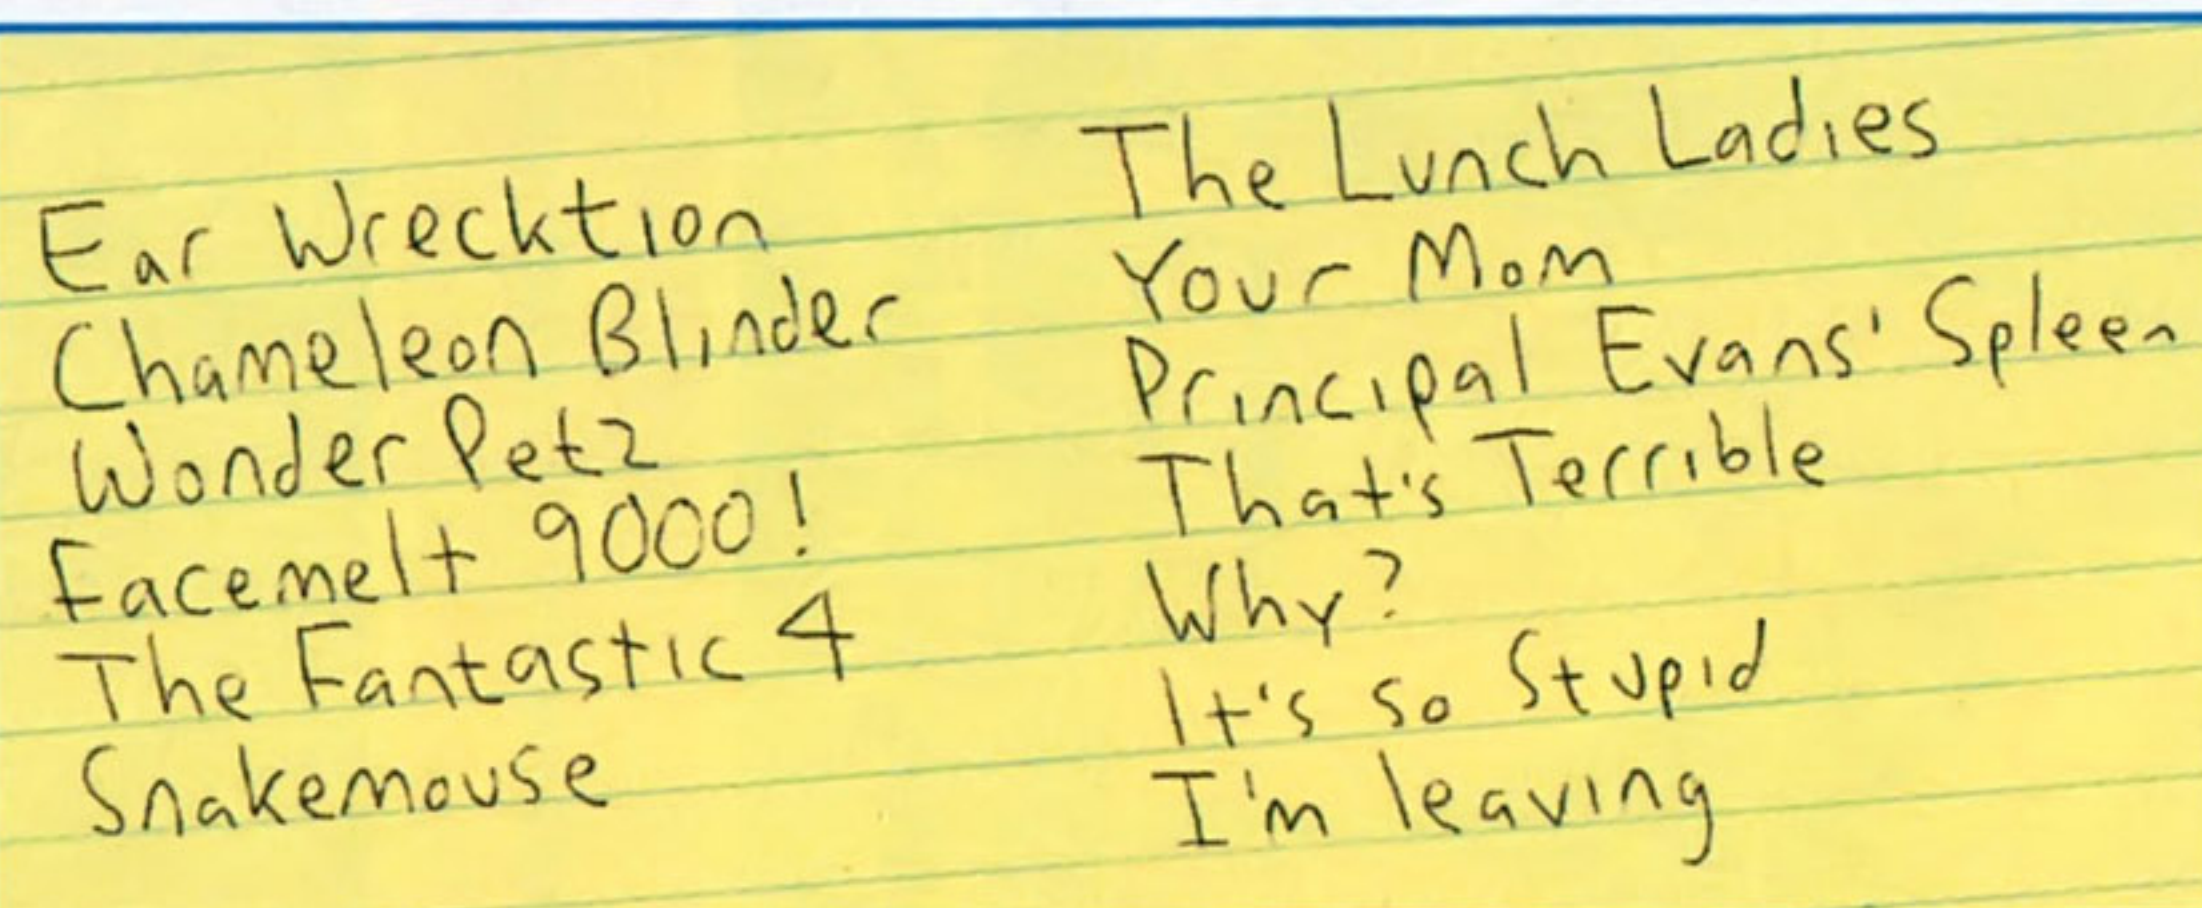 Ear Wrecktion
Chameleon Blinder
Wonder Petz
Facemelt 9000!
The Fantastic 4
Snakemouse
The Lunch Ladies
Your Mom
Principal Evans' Spleen
That's Terrible
Why?
It's so Stupid
I'm leaving